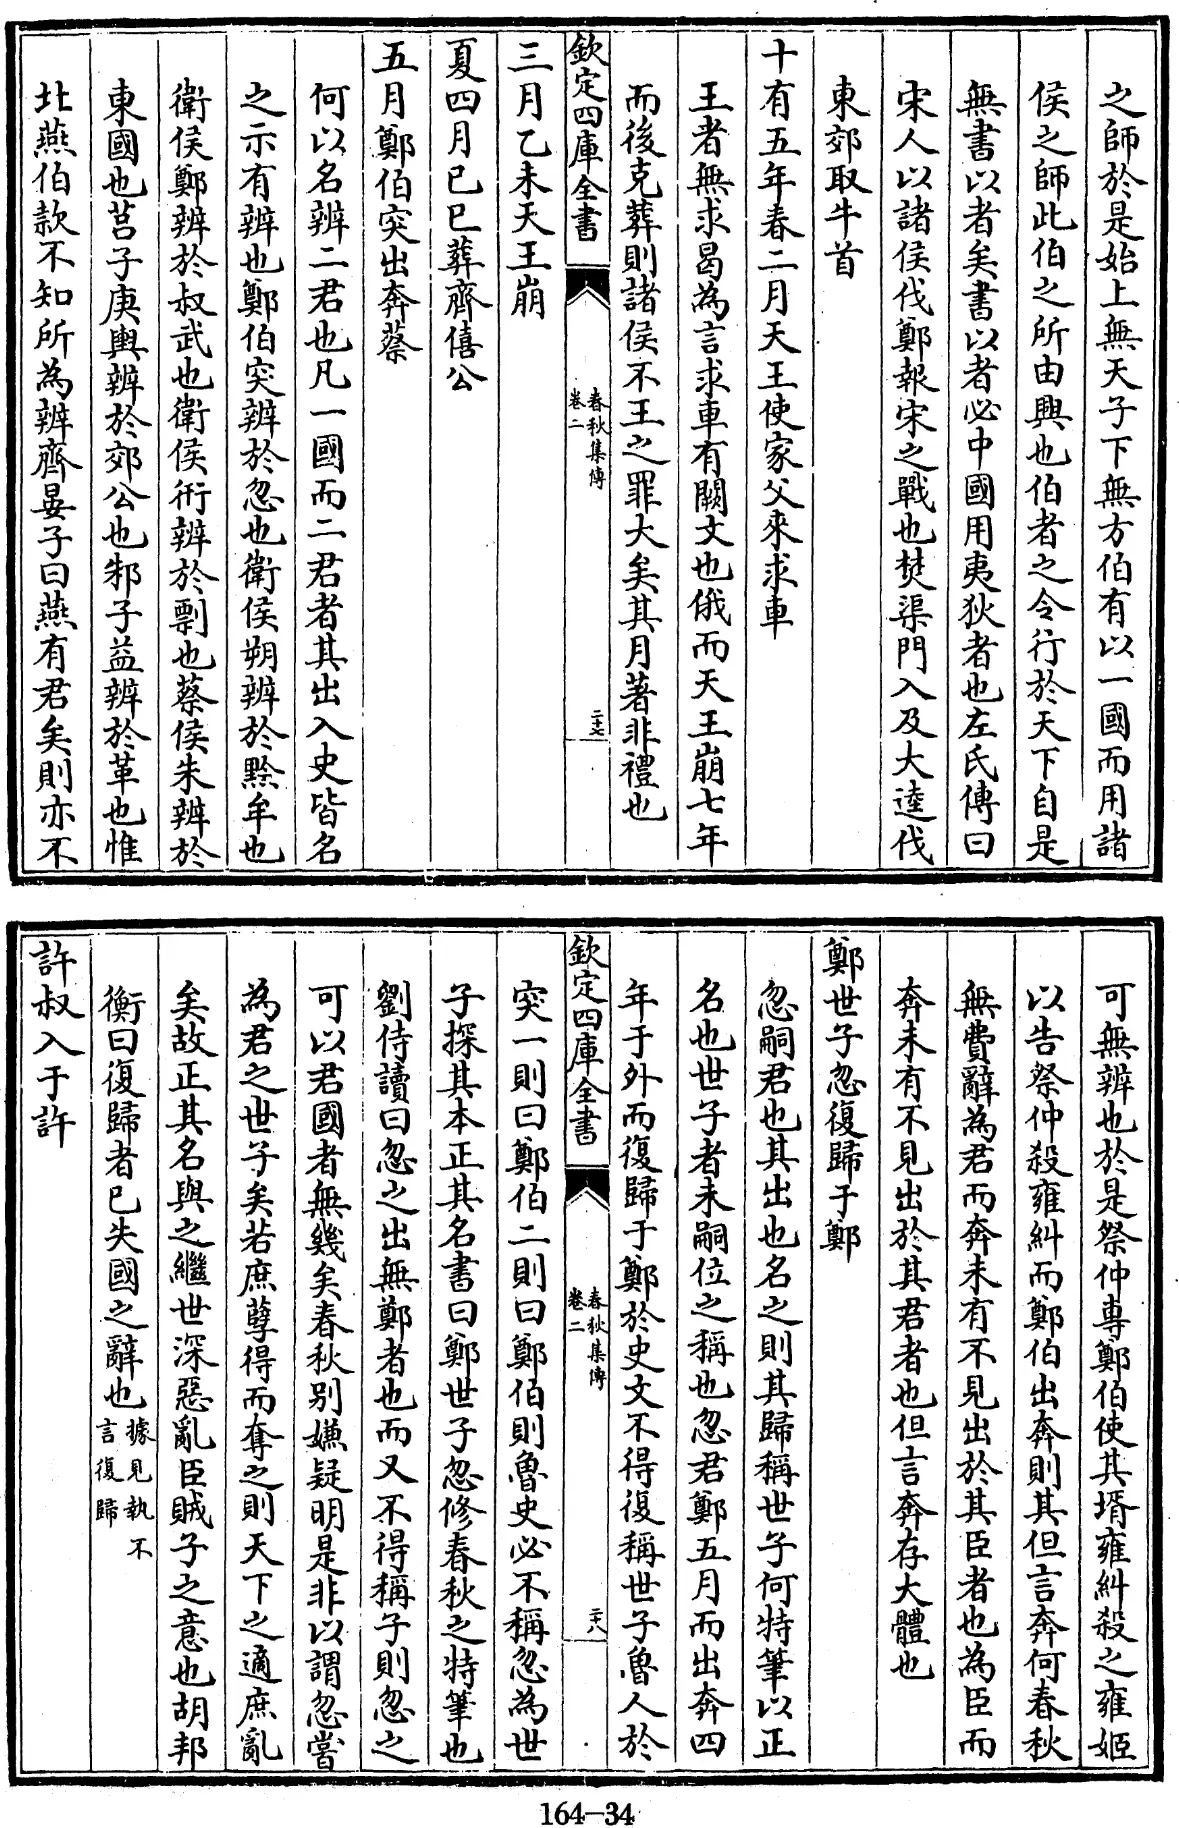 之師於是始上無天子下無方伯有以一國而用諸
侯之師此伯之所由興也伯者之令行於天下自是
無書以者矣書以者必中國用夷狄者也左氏傳曰
宋人以諸侯伐鄭報宋之戰也焚渠門入及大逵伐
東郊取牛首
十有五年春二月天王使家父來求車
王者無求曷為言求車有闕文也俄而天王崩七年
而後克葬則諸侯不王之罪大矣其月著非禮也
欽定四庫全書
春秋集傳
卷二
二十七
三月乙未天王崩
夏四月己巳葬齊僖公
五月鄭伯突出奔蔡
何以名辨二君也凡一國而二君者其出入史皆名
之示有辨也鄭伯突辨於忽也衛侯朔辨於黔牟也
衛侯鄭辨於叔武也衛侯衎辨於剽也蔡侯朱辨於
東國也莒子庚輿辨於郊公也邾子益辨於革也惟
北燕伯款不知所為辨齊晏子曰燕有君矣則亦不
可無辨也於是祭仲專鄭伯使其壻雍糾殺之雍姬
以告祭仲殺雍糾而鄭伯出奔則其但言奔何春秋
無費辭為君而奔未有不見出於其臣者也為臣而
奔未有不見出於其君者也但言奔存大體也
鄭世子忽復歸于鄭
忽嗣君也其出也名之則其歸稱世子何特筆以正
名也世子者未嗣位之稱也忽君鄭五月而出奔四
年于外而復歸于鄭於史文不得復稱世子魯人於
欽定四庫全書
春秋集傳
卷二
二十八
突一則曰鄭伯二則曰鄭伯則魯史必不稱忽為世
子探其本正其名書曰鄭世子忽修春秋之特筆也
劉侍讀曰忽之出無鄭者也而又不得稱子則忽之
可以君國者無幾矣春秋別嫌疑明是非以謂忽嘗
為君之世子矣若庶孽得而奪之則天下之適庶亂
矣故正其名與之繼世深惡亂臣賊子之意也胡邦
衡曰復歸者已失國之辭也據見執不
言復歸
許叔入于許
164-34